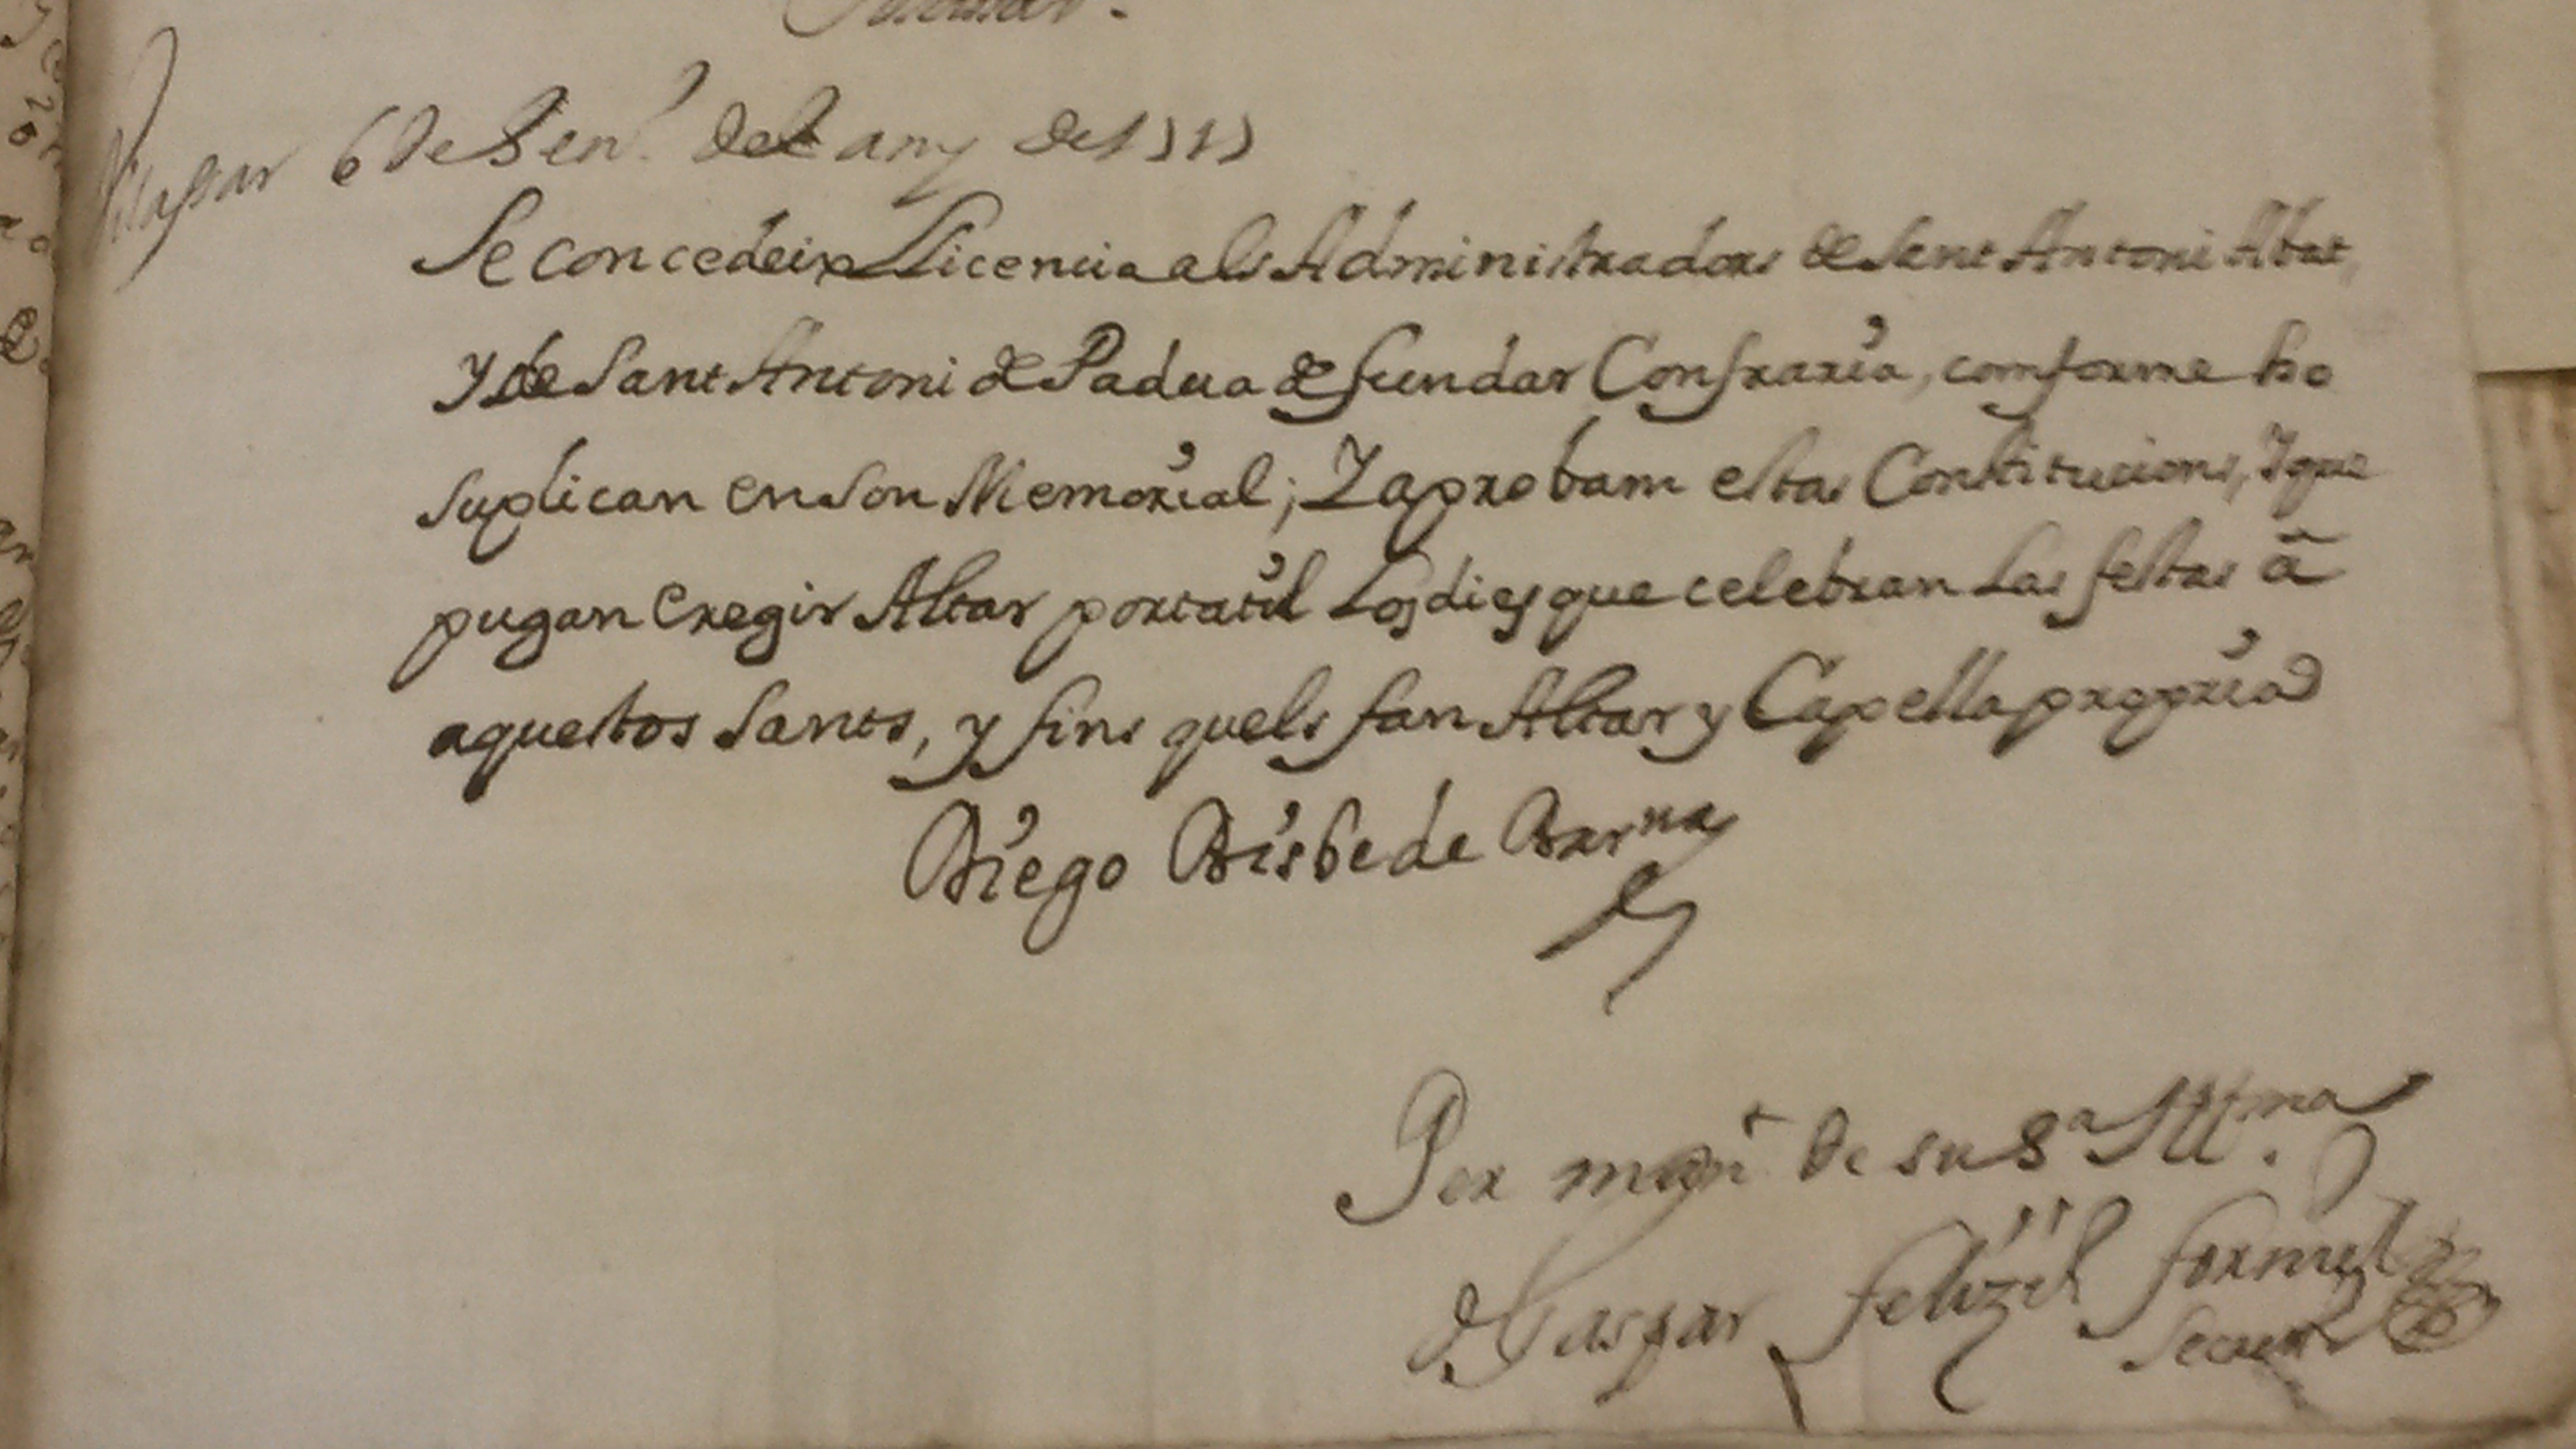 Vilassar 6 de Gen.r del any de 1757
Se concedeix Llicencia als Administradors de Sant Antoni Abat,
y de Sant Antoni de Padua de fundar Confraria, comforme ho
suplican en son Memorial; Y aprobam estas Constitucions, Y que
pugan eregir Altar portatil los dies que celebran las festas à
aquestos Sants, y fins quels fan Altar y Capella propria
Diego Bisbe de Bar.na
Per man.t de su S.a Ill.ma
Gaspar
Secret